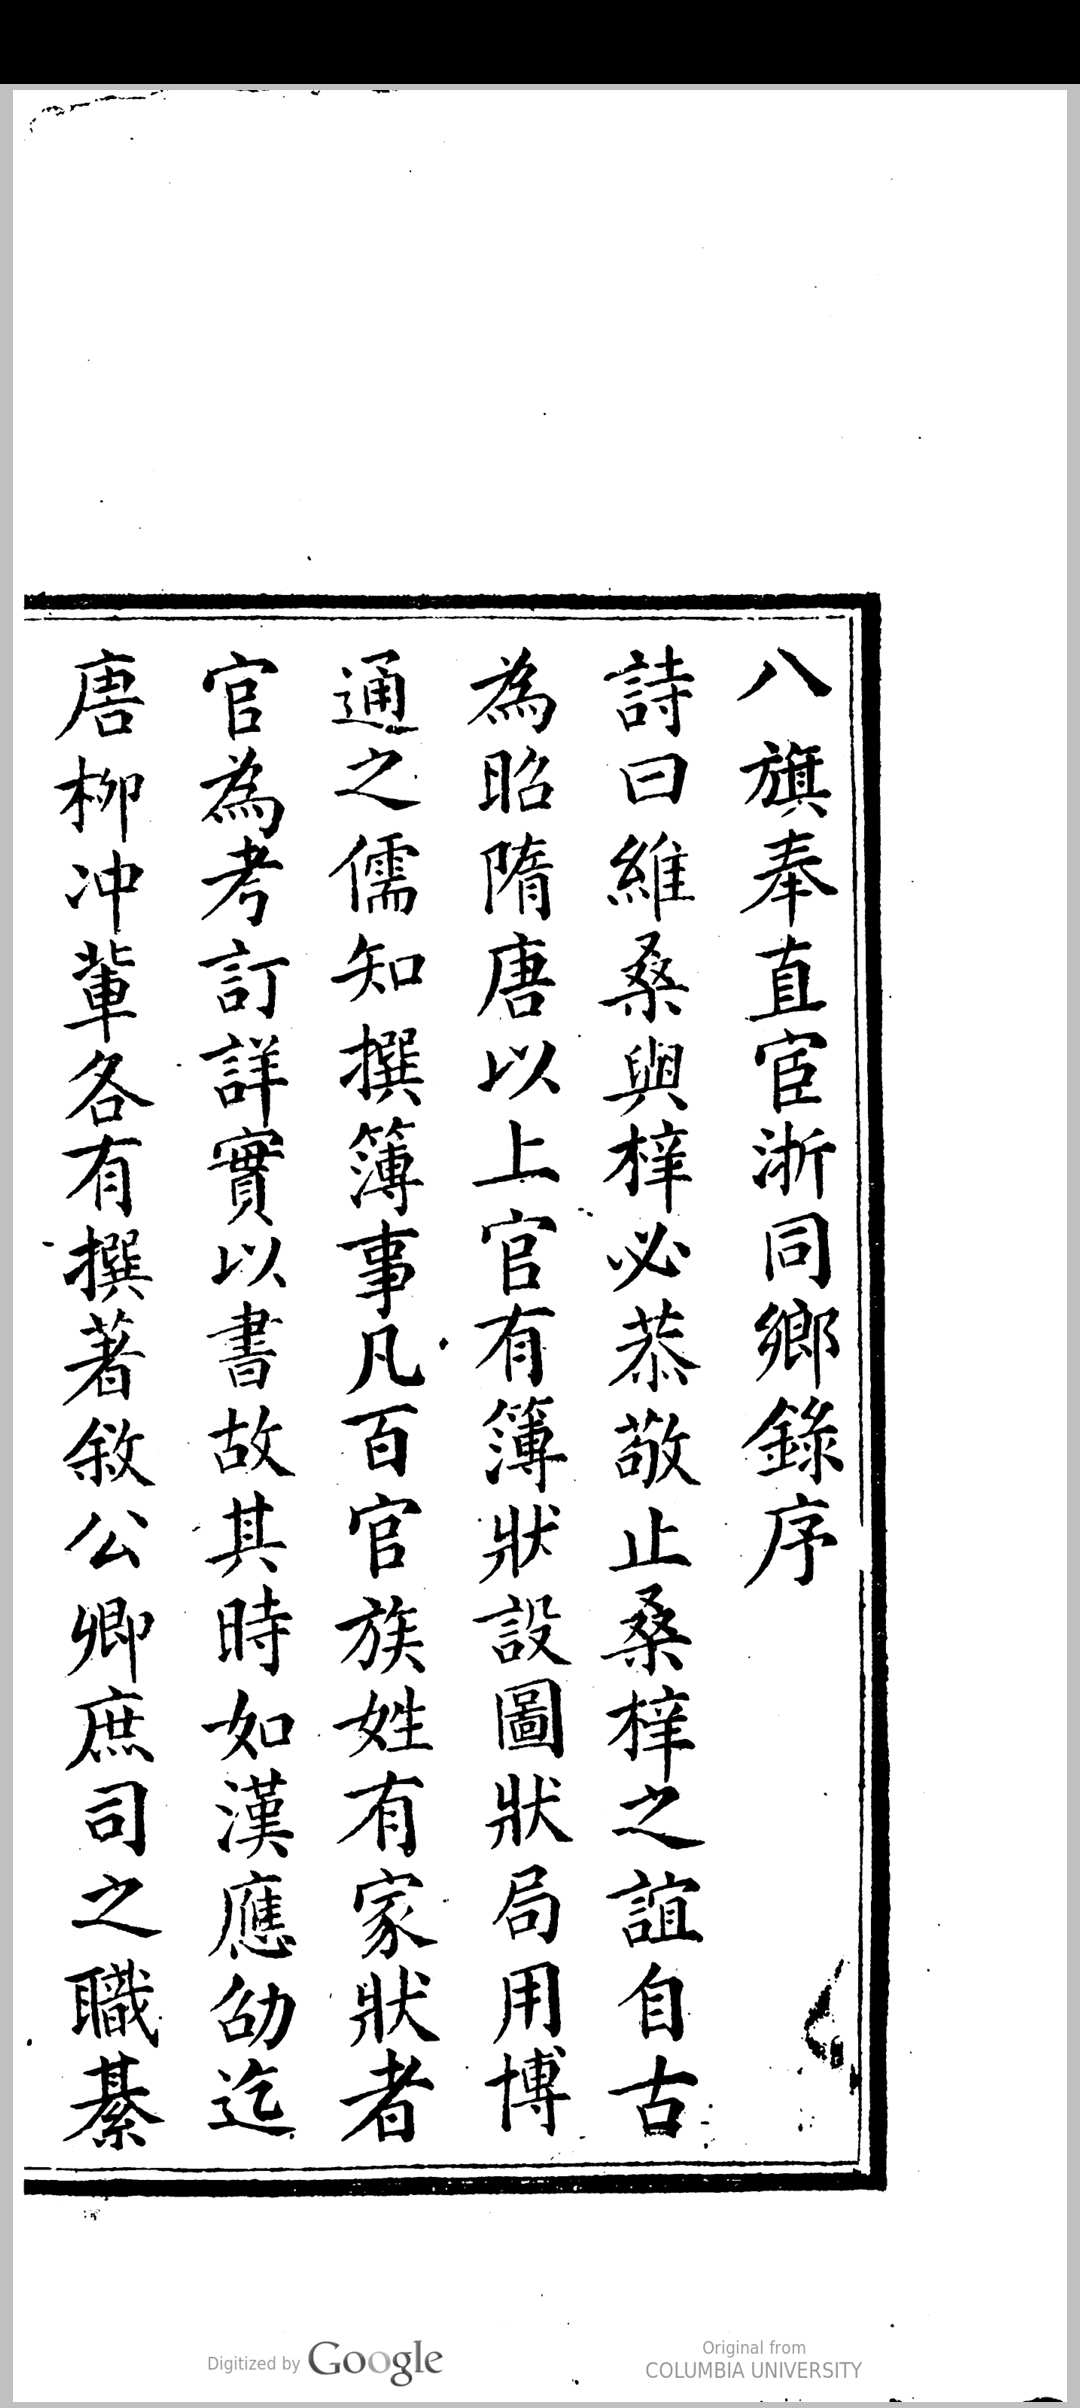 八旗奉直宦浙同鄉錄序
詩曰維桑與梓必恭敬止桑梓之誼自古
為昭隋唐以上官有簿狀設圖狀局用博
通之儒知撰簿事凡百官族姓有家狀者
官為考訂詳實以書故其時如漢應劭迄
唐柳冲輩各有撰著敘公卿庶司之職綦
Digitized by Google
Original from
COLUMBIA UNIVERSITY